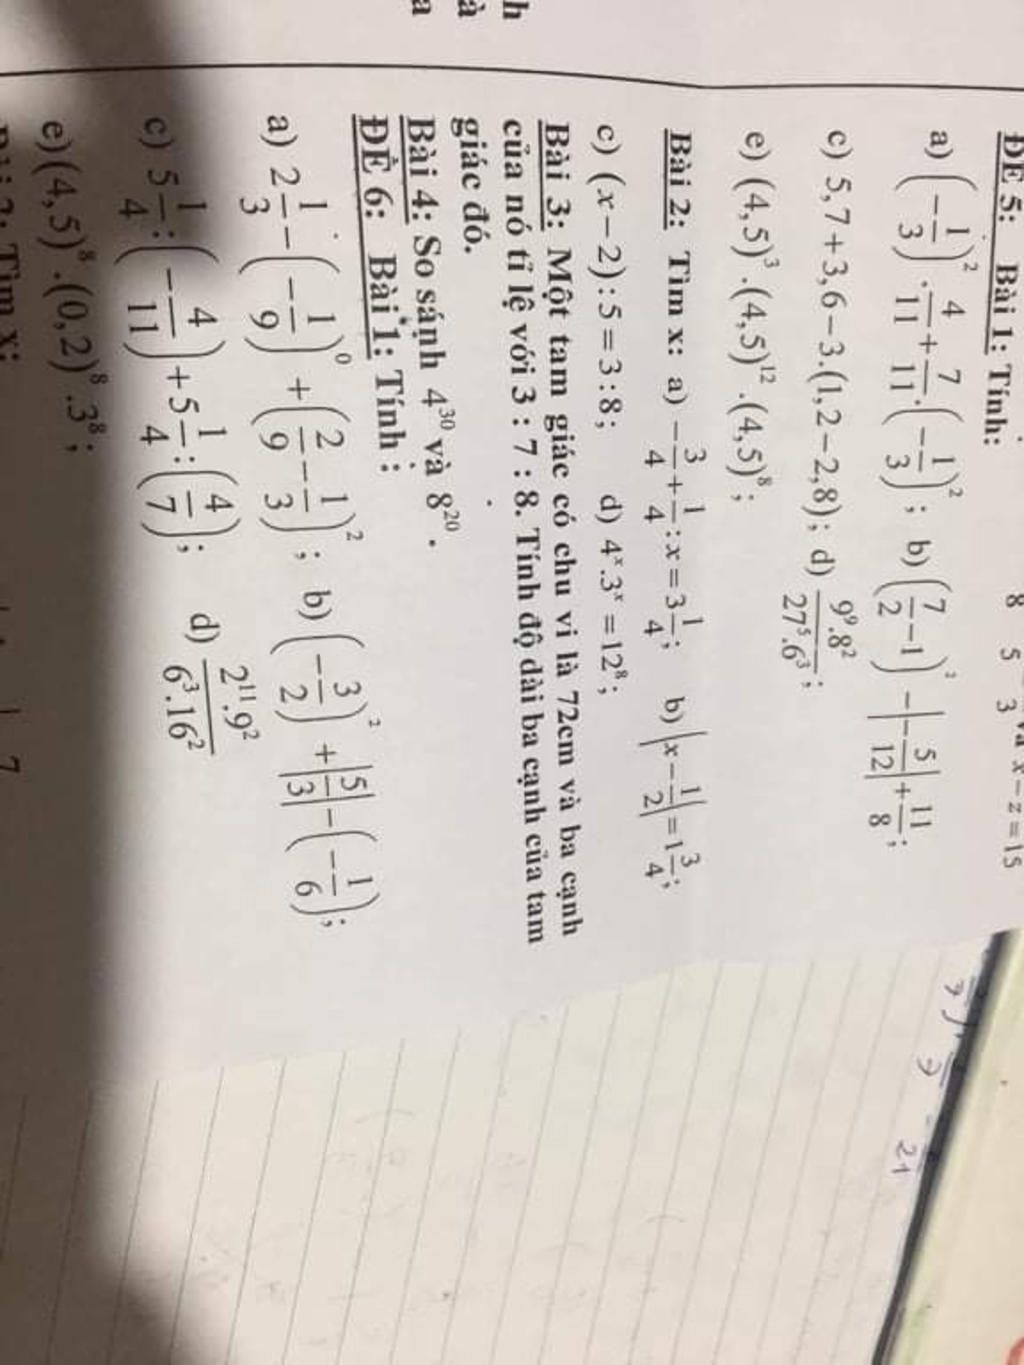 8 5 3 và x − z = 15
ĐỀ 5: Bài 1: Tính:
a) (−1/3)² . 4/11 + 7/11 . (−1/3)² ; b) (7/2 − 1)² − |−5/12| + 11/8 ;
c) 5,7 + 3,6 − 3.(1,2 − 2,8) ; d) 9⁹.8²/27⁵.6³ ;
e) (4,5)³ .(4,5)¹² .(4,5)⁸ ;
Bài 2: Tìm x: a) −3/4 + 1/4 : x = 3 1/4 ; b) |x − 1/2| = 1 3/4 ;
c) (x − 2) : 5 = 3 : 8 ; d) 4ˣ.3ˣ = 12⁸ ;
Bài 3: Một tam giác có chu vi là 72cm và ba cạnh
của nó tỉ lệ với 3 : 7 : 8. Tính độ dài ba cạnh của tam
giác đó.
Bài 4: So sánh 4³⁰ và 8²⁰ .
ĐỀ 6: Bài 1: Tính :
a) 2 1/3 − (−1/9)⁰ + (2/9 − 1/3)² ; b) (−3/2)² + |5/3| − (−1/6) ;
c) 5 1/4 : (−4/11) + 5 1/4 : (4/7) ; d) 2¹¹.9²/6³.16²
e) (4,5)⁸ .(0,2)⁸ .3⁸ ;
Tìm x:
21